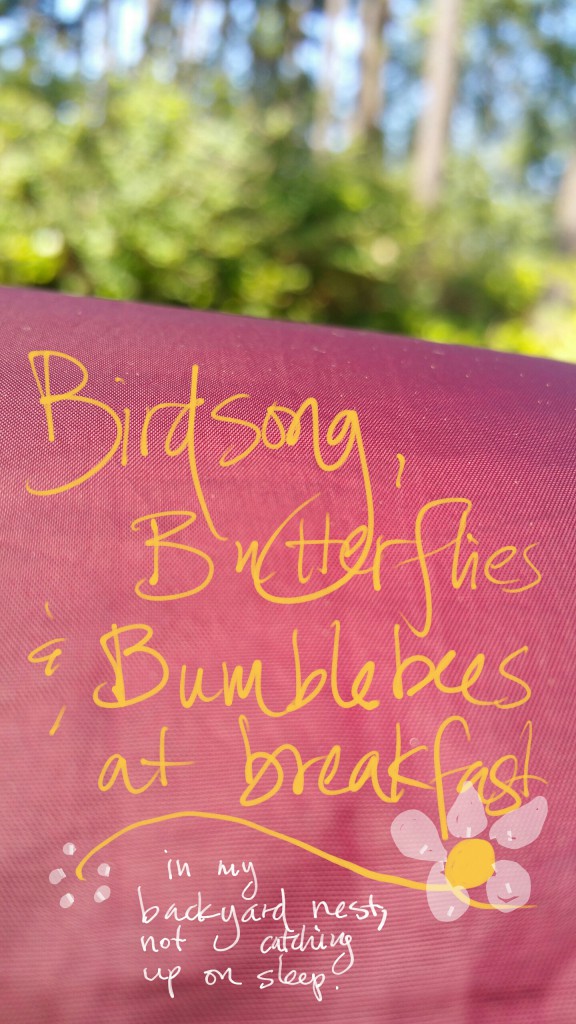 Birdsong,
Butterflies
& Bumblebees
at breakfast
in my
backyard nest,
not catching
up on sleep.